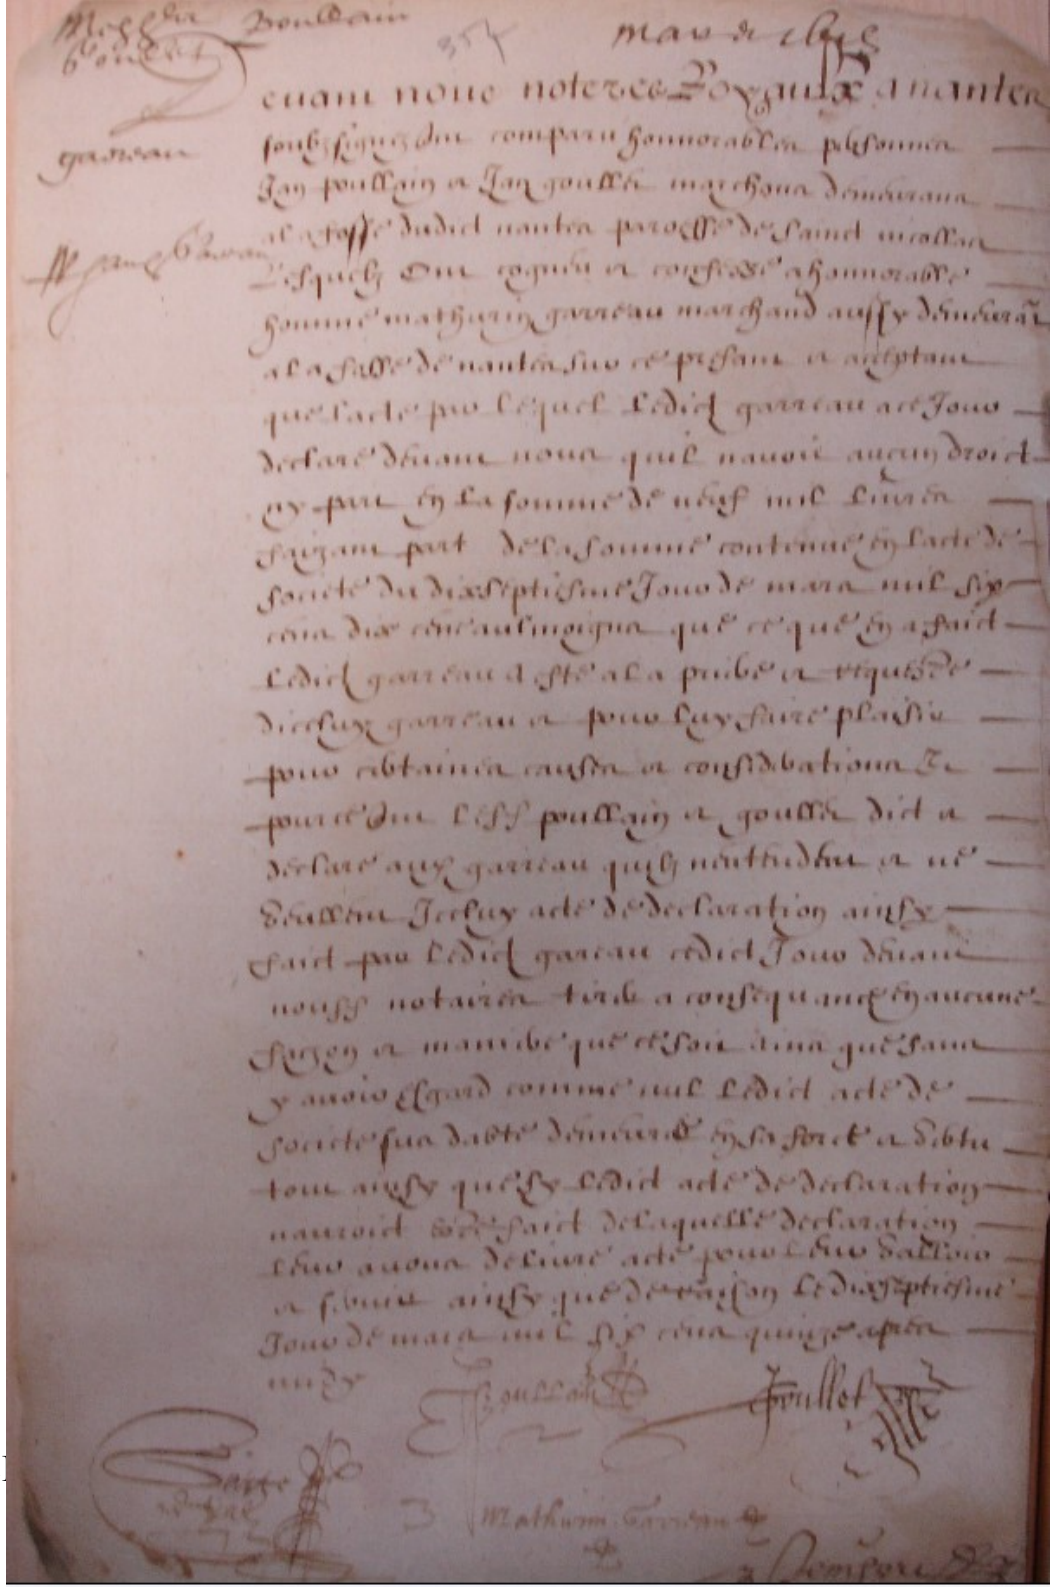 Poullain
Goullet
mars
garreau
evant nous noteres Royaulx a nantes
soubzsignez ont comparu honnorables personnes
Jan poullain et Jan goullet marchans demeurans
a la fosse dudict nantes paroesse de sainct nicollas
Lesquelz Ont cogneu et confessé a honnorable
homme mathurin garreau marchand aussy demeurãt
a la fosse de nantes sur ce presant et acceptant
que lacte par lequel Ledict garreau a ce Jour
declaré devant nous quil navoit aucun droict
ny part en la somme de neuf mil Livres
faizant part de la somme contenue en lacte de
societé du dixseptiesme Jour de mars mil six
cens dix ce neaulmoigns que ce que en a faict
Ledict garreau a esté a la priere et requeste
dicelux garreau et pour luy faire plaisir
pour certaines causes et considerations Et
pour ce Ont Lesd poullain et goullet dict et
declaré aux garreau quilz nentendent et ne
veullent Iceluy acte de declaration ainsy
faict par Ledict gareau cedict Jour devant
nousd notaires tirer a consequance en aucune
faczon et maniere que ce soit ains que sans
y avoir esgard comme nul Ledict acte de
societé sus dabté demeure en sa force et vertu
tout ainsy que sy Ledict acte de declaration
nauroict esté faict de laquelle declaration
Leur avons delivré acte pour leur valloir
et servir ainsy que de raison Le dixseptiesme
Jour de mars mil six cens quinze apres
midy
Poullain
Goullet
Mathurin Garreau